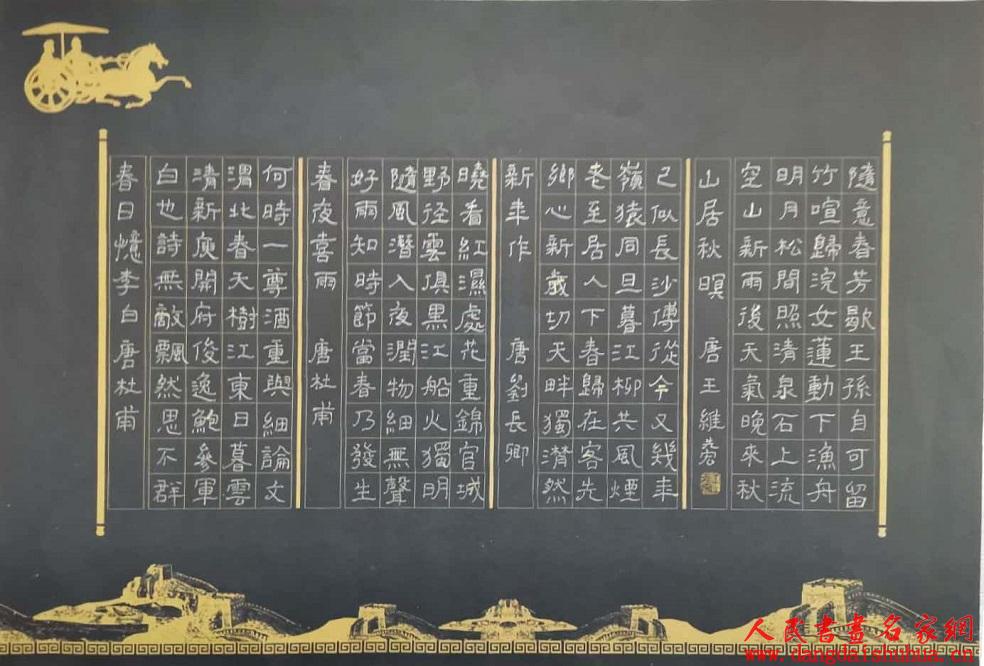 春日憶李白 唐杜甫
白也詩無敵飄然思不群
清新庾開府俊逸鮑參軍
渭北春天樹江東日暮雲
何時一尊酒重與細論文
春夜喜雨 唐杜甫
好雨知時節當春乃發生
隨風潛入夜潤物細無聲
野径雲俱黑江船火獨明
曉看紅濕處花重錦官城
新年作 唐劉長卿
鄉心新歲切天畔獨潸然
老至居人下春歸在客先
嶺猿同旦暮江柳共風煙
已似長沙傅從今又幾年
山居秋暝 唐王維
空山新雨後天氣晚來秋
明月松間照清泉石上流
竹喧歸浣女蓮動下漁舟
隨意春芳歇王孫自可留
人民書畫名家網
www.dangdaishuhua.cn